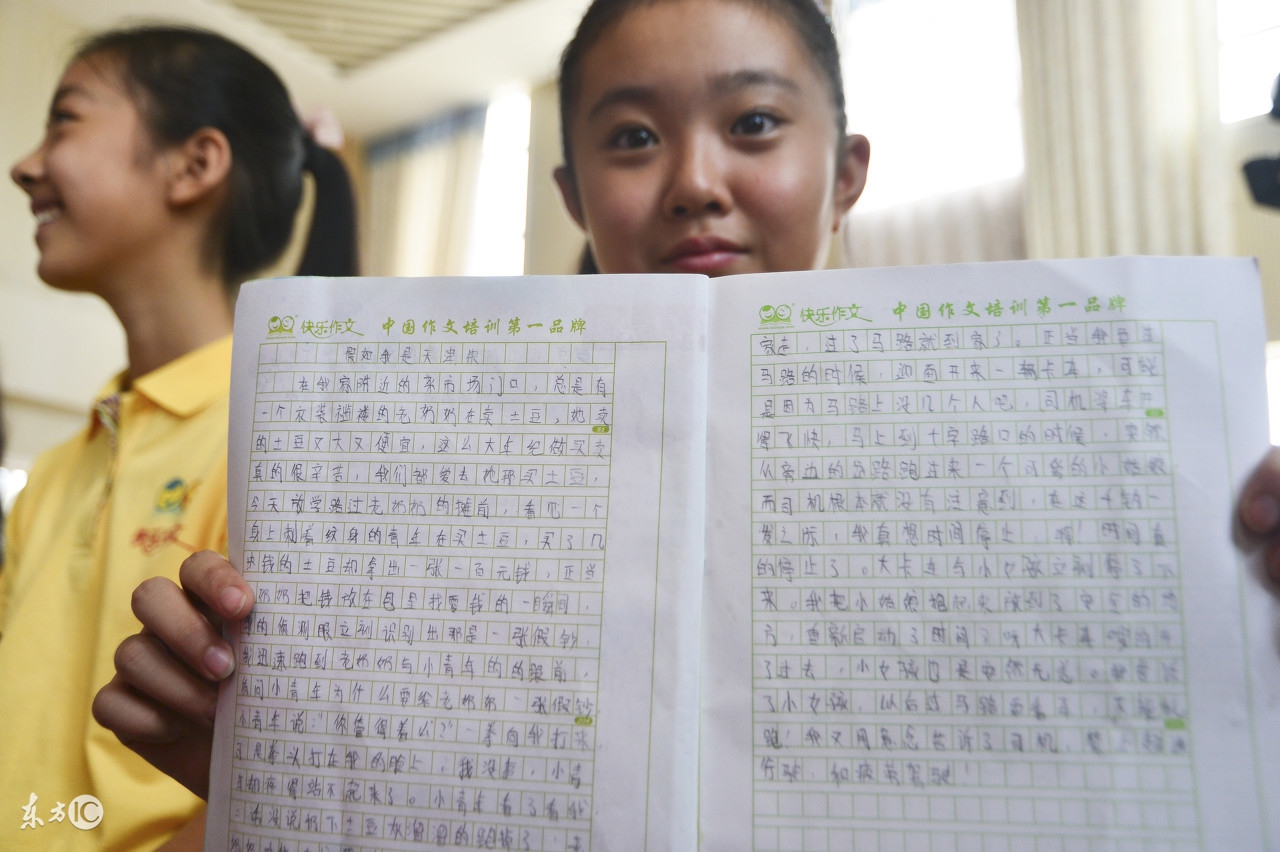 快乐作文 中国作文培训第一品牌
假如我是天津快
在我家附近的菜市场门口，总是有
一个衣装褴褛的老奶奶在卖土豆，她卖
的土豆又大又便宜，这么大年纪做买卖
真的很辛苦，我们都爱去她那买土豆，
今天放学路过老奶奶的摊前，看见一个
身上刺着纹身的青年在买土豆，买了几
块钱的土豆却拿出一张一百元钱，正当
奶奶把钱放在包里找零钱的一瞬间，
的侦测眼立刻识别出那是一张假钞，
我迅速跑到老奶奶与小青年的的跟前，
质问小青年为什么要给老奶奶一张假钞
小青年说："你管得着么？"一拳向我打来
了是拳头打在我的脸上，我没事，小青
年却疼得站不起来了。小青年看了看我
二话没说扔下土豆灰溜溜的跑掉了，
快乐作文 中国作文培训第一品牌
家走，过了马路就到家了。正当我
马路的时候，迎面开来一辆卡车，可能
是因为马路上没几个人吧，司机
得飞快，马上到十字路口的时候，突然
从旁边的岔路跑过来一个可爱的小姑娘
而司机根本就没有注意到，在这千钧一
发之际，我真想时间停止，啊！时间真
的停止了。大卡车与小女孩立刻停了下
来。我把小姑娘抱起来放到了安全的地
方，重新启动了时间，大卡车
了过去，小女孩也是安然无恙。我告诉
了小女孩，以后过马路要看车，
跑！我又用意念告诉了司机，禁止超速
行驶，和疲劳驾驶！
东方IC